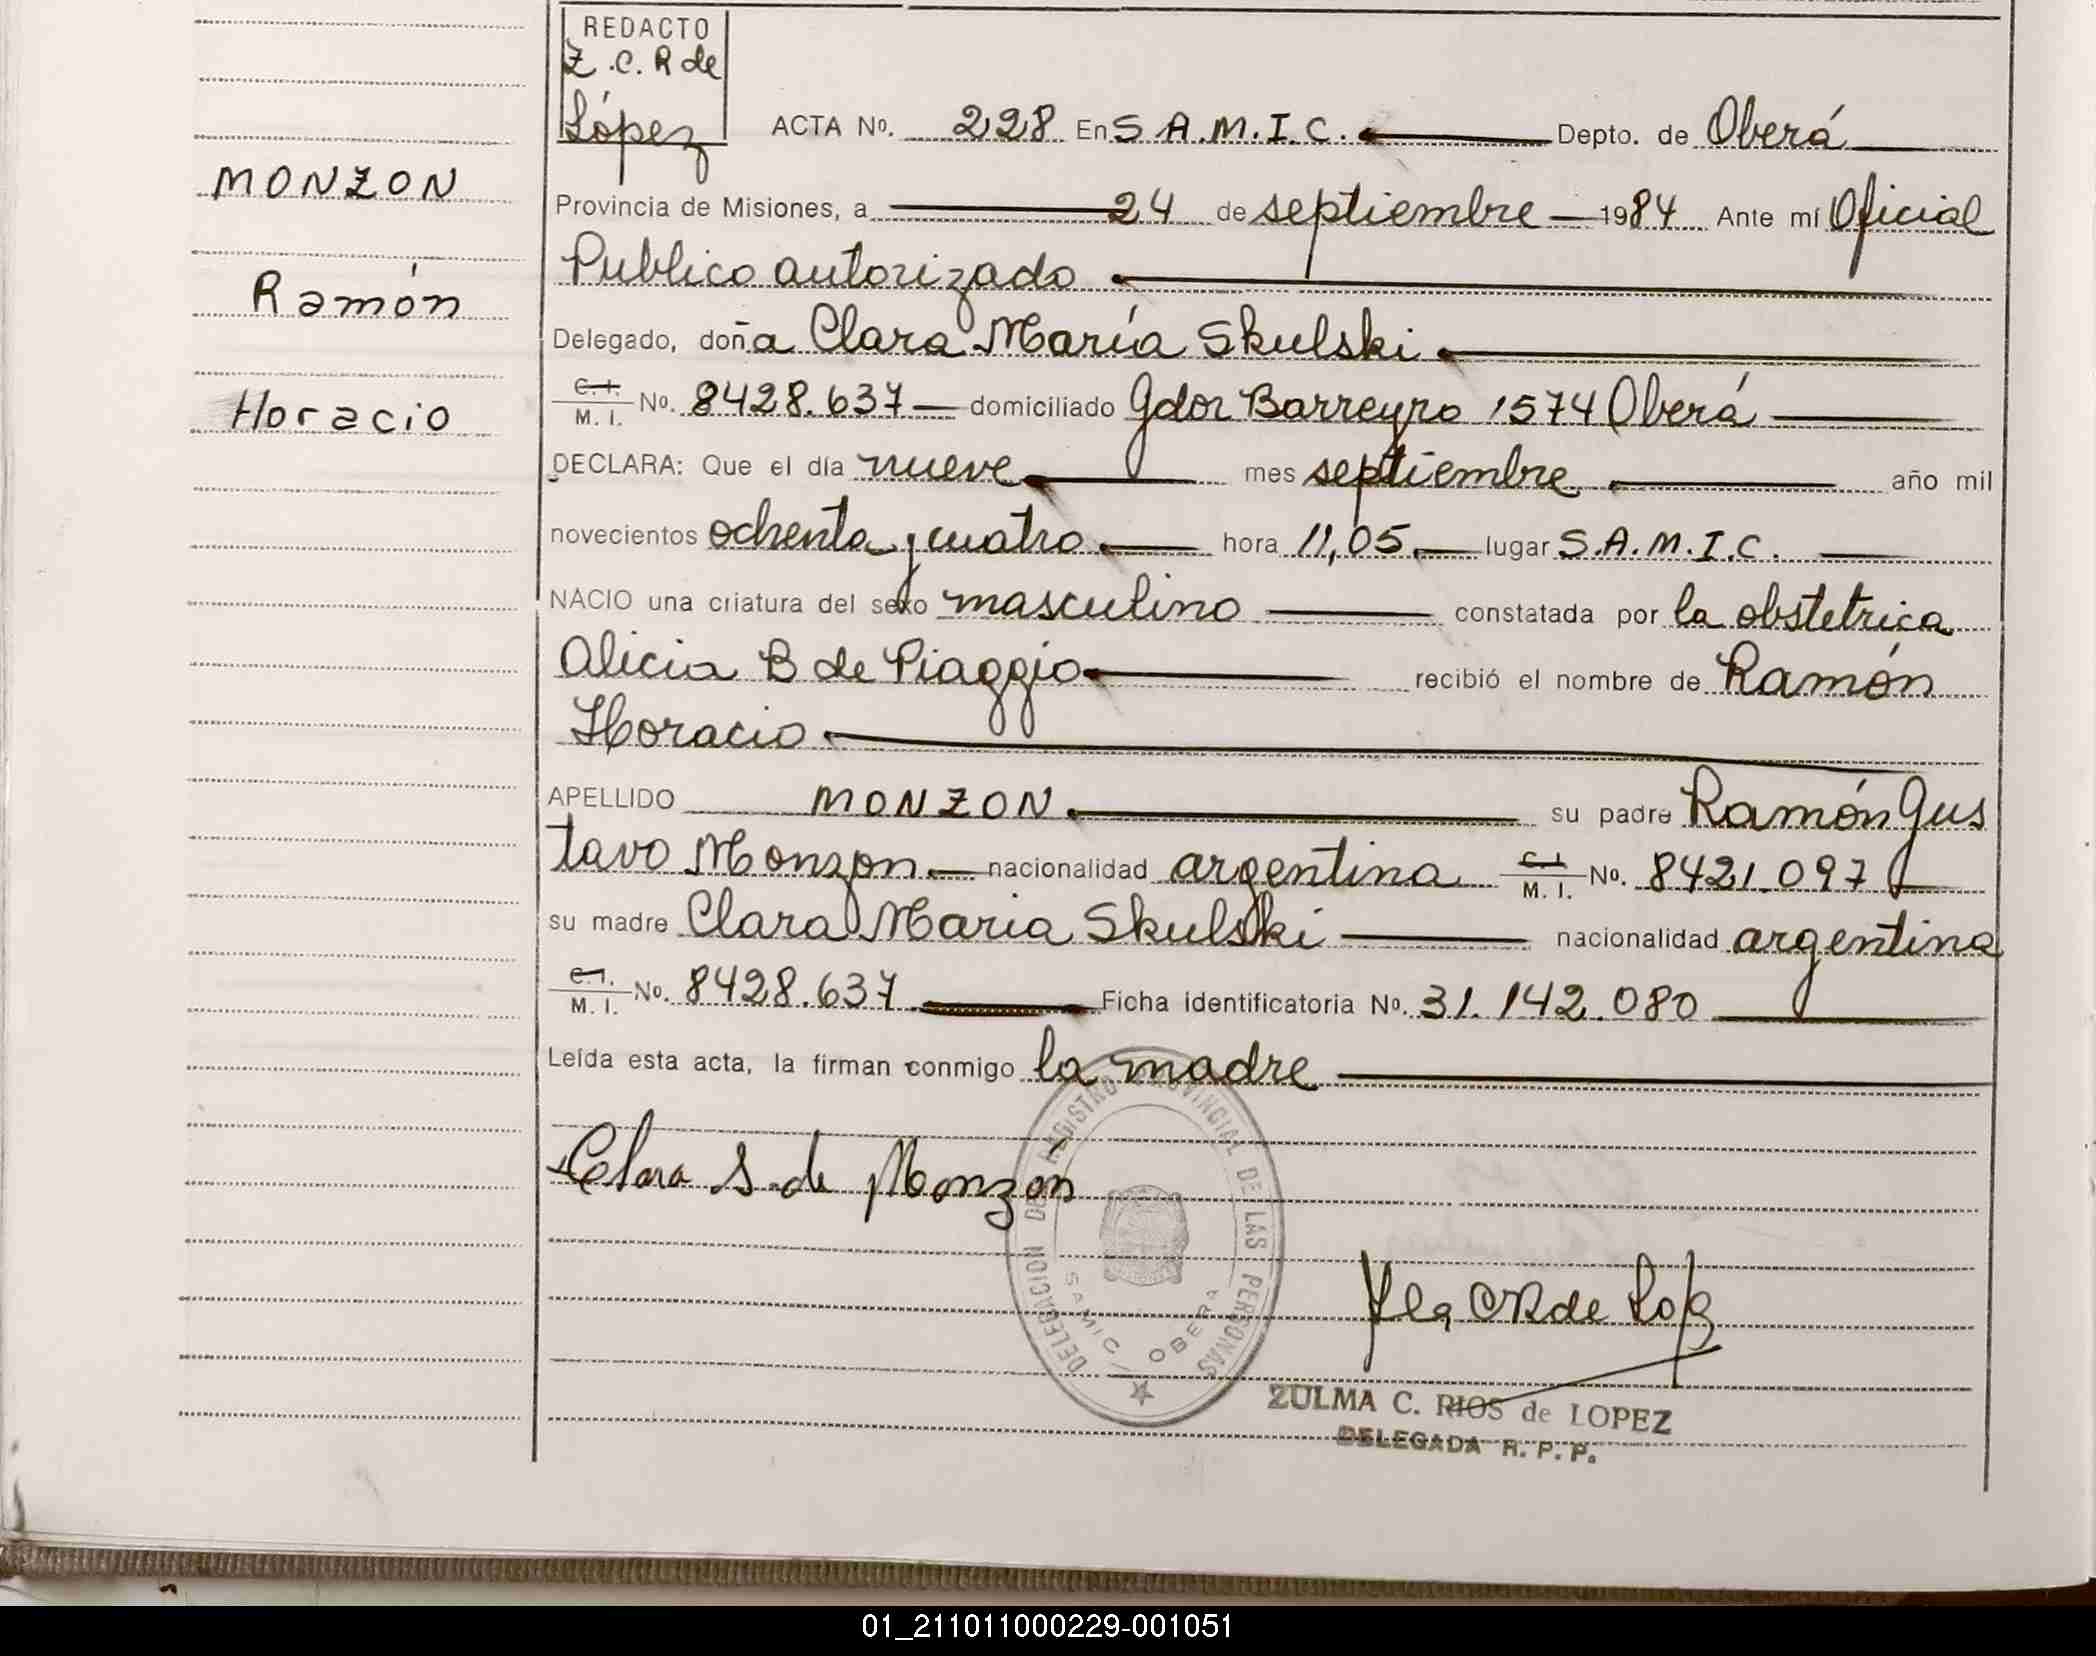 REDACTO
Z.C.R de
López
ACTA No. 228 En S.A.M.I.C. Depto. de Oberá
MONZON
Provincia de Misiones, a 24 de septiembre 1984 Ante mí Oficial
Publico autorizado
Ramón
Delegado, doña Clara María Skulski
Horacio
C.I. M.I. No. 8428.637 domiciliado Gdor Barreyro 1574 Oberá
DECLARA: Que el día nueve mes septiembre año mil
novecientos ochenta y cuatro hora 11,05 lugar S.A.M.I.C.
NACIO una criatura del sexo masculino constatada por la obstetrica
Alicia B de Piaggio recibió el nombre de Ramón
Horacio
APELLIDO MONZON su padre Ramón Gus
tavo Monzon nacionalidad argentina C.I. M.I. No. 8421.097
su madre Clara Maria Skulski nacionalidad argentina
C.I. M.I. No. 8428.637 Ficha identificatoria No. 31.142.080
Leída esta acta, la firman conmigo la madre
Clara S. de Monzón
DELEGACION DEL REGISTRO PROVINCIAL DE LAS PERSONAS
SAMIC / OBERA
ZULMA C. RIOS de LOPEZ
DELEGADA R.P.P.
01_211011000229-001051